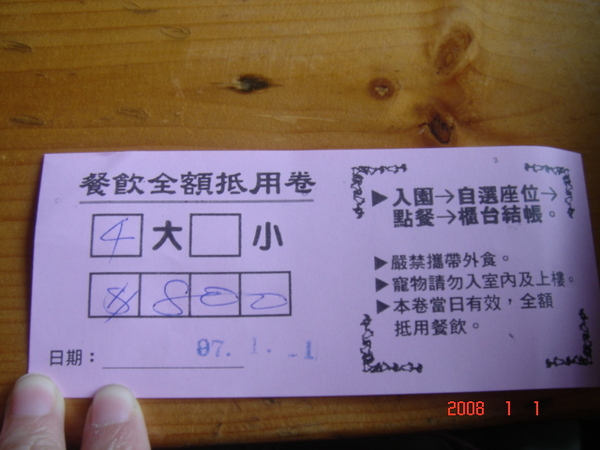 餐飲全額抵用卷
4 大 小
$ 8 0 0
日期： 97. 1. -1
▶入園→自選座位→
點餐→櫃台結帳。
▶嚴禁攜帶外食。
▶寵物請勿入室內及上樓。
▶本卷當日有效，全額
抵用餐飲。
2008 1 1